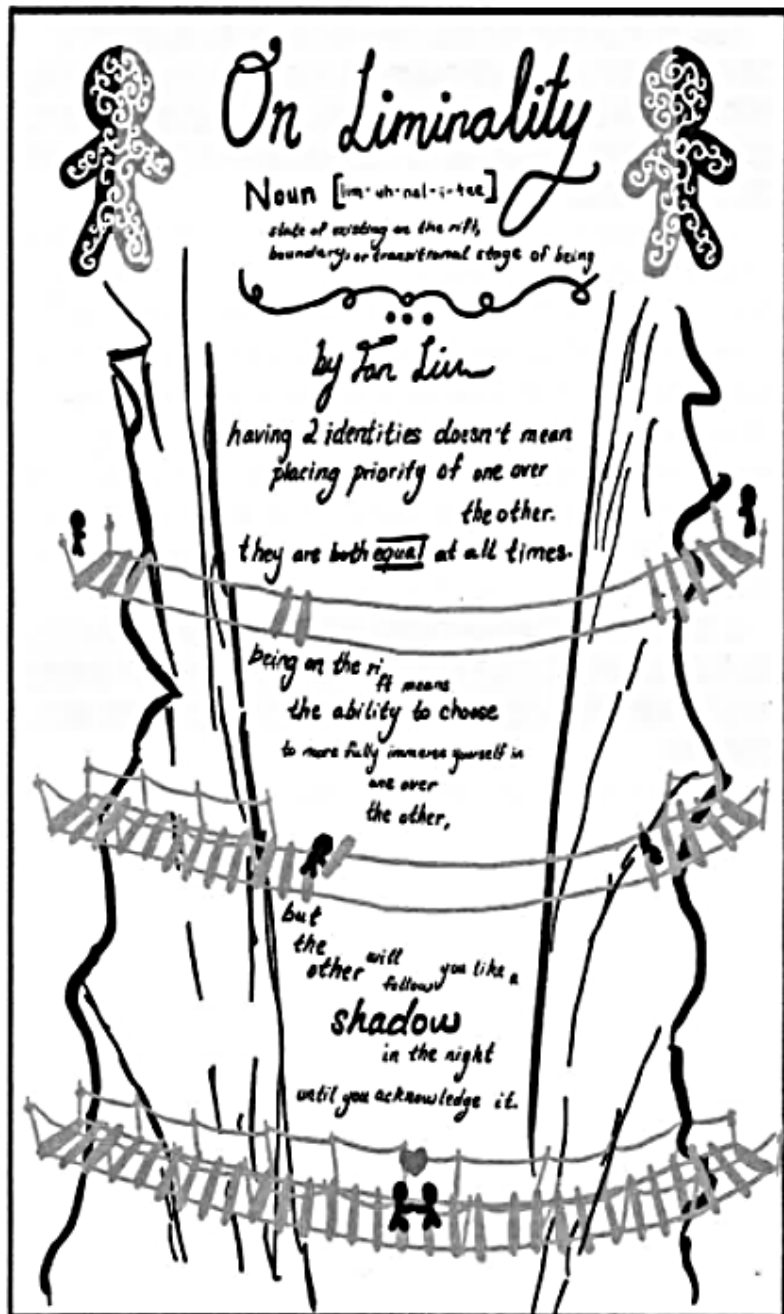 On Liminality
Noun [lim-uh-nal-i-tee]
state of existing on the rift,
boundary, or transitional stage of being
by Ian Liu
having 2 identities doesn't mean
placing priority of one over
the other.
they are both equal at all times.
being on the rift means
the ability to choose
to more fully immerse yourself in
one over
the other,
but
the
other will follow you like a
shadow
in the night
until you acknowledge it.